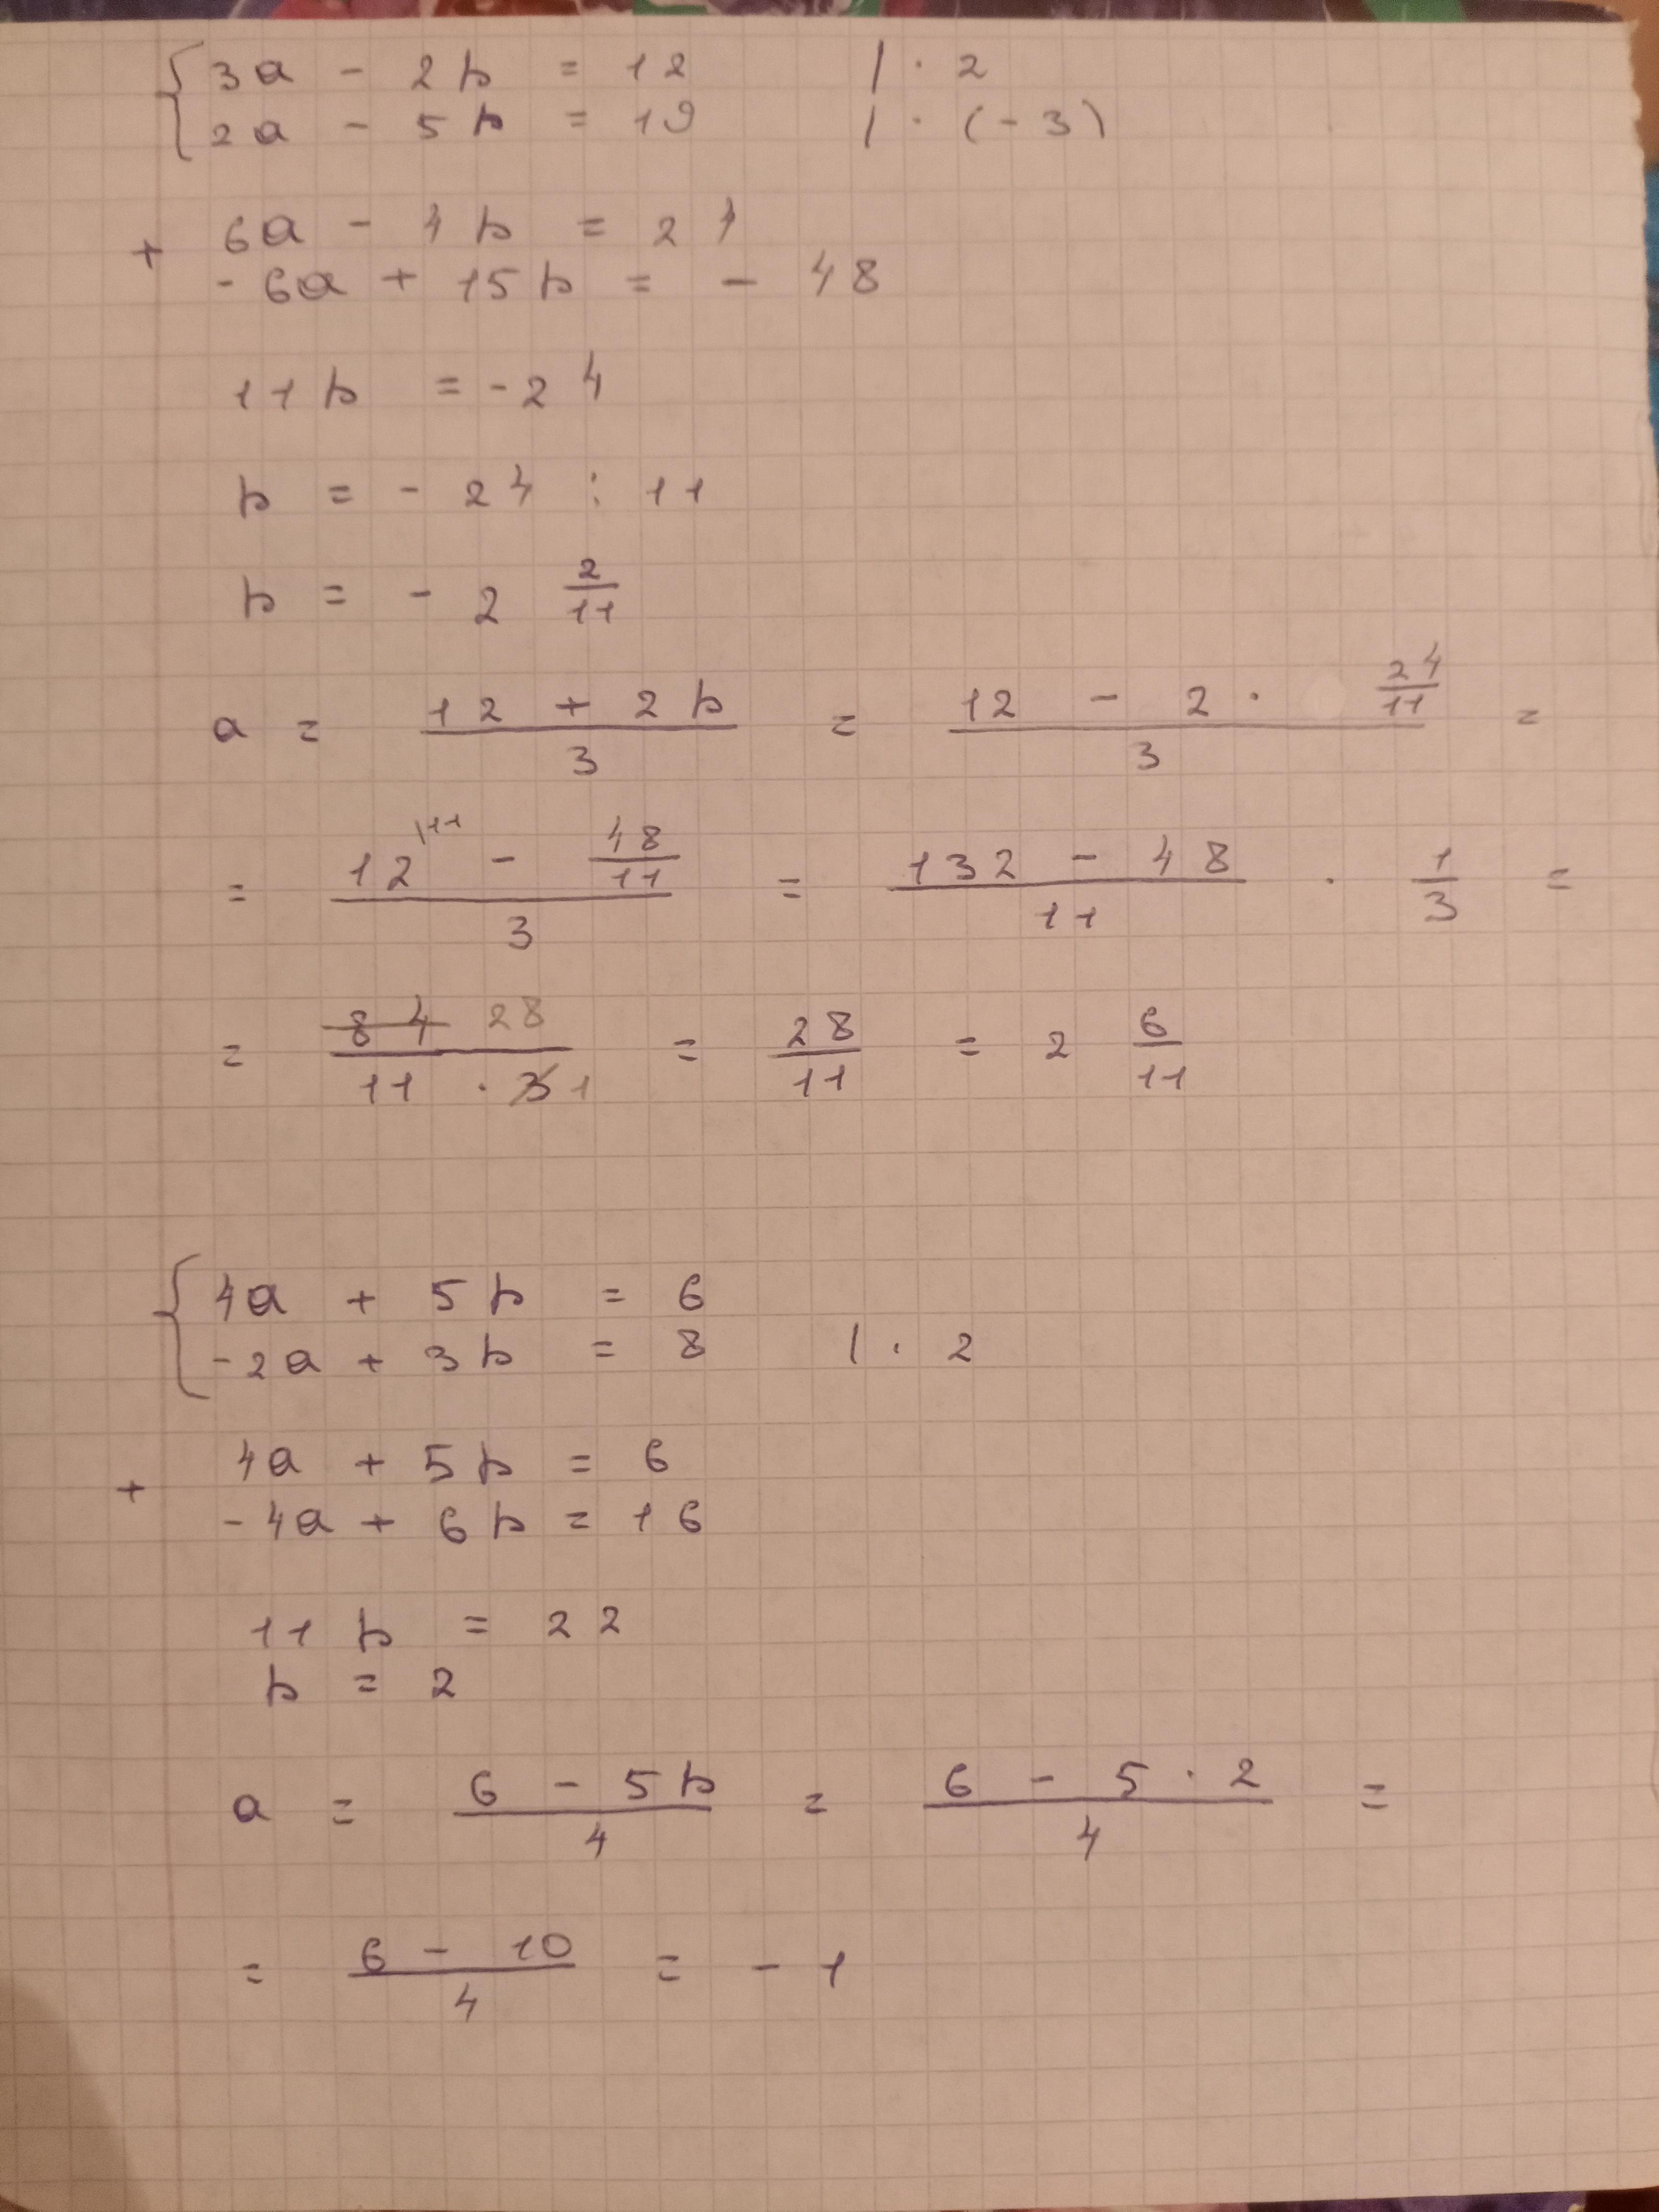 { 3a - 2b = 12 | · 2
2a - 5b = 19 | · (-3)
+ 6a - 4b = 24
-6a + 15b = - 48
11b = -24
b = - 24 : 11
b = - 2 2/11
a = (12 + 2b)/3 = (12 - 2 · 24/11)/3 =
= (12 |11 - 48/11)/3 = (132 - 48)/11 · 1/3 =
= (84 28)/(11 · 3 1) = 28/11 = 2 6/11
{ 4a + 5b = 6
-2a + 3b = 8 | · 2
+ 4a + 5b = 6
-4a + 6b = 16
11b = 22
b = 2
a = (6 - 5b)/4 = (6 - 5 · 2)/4 =
= (6 - 10)/4 = - 1